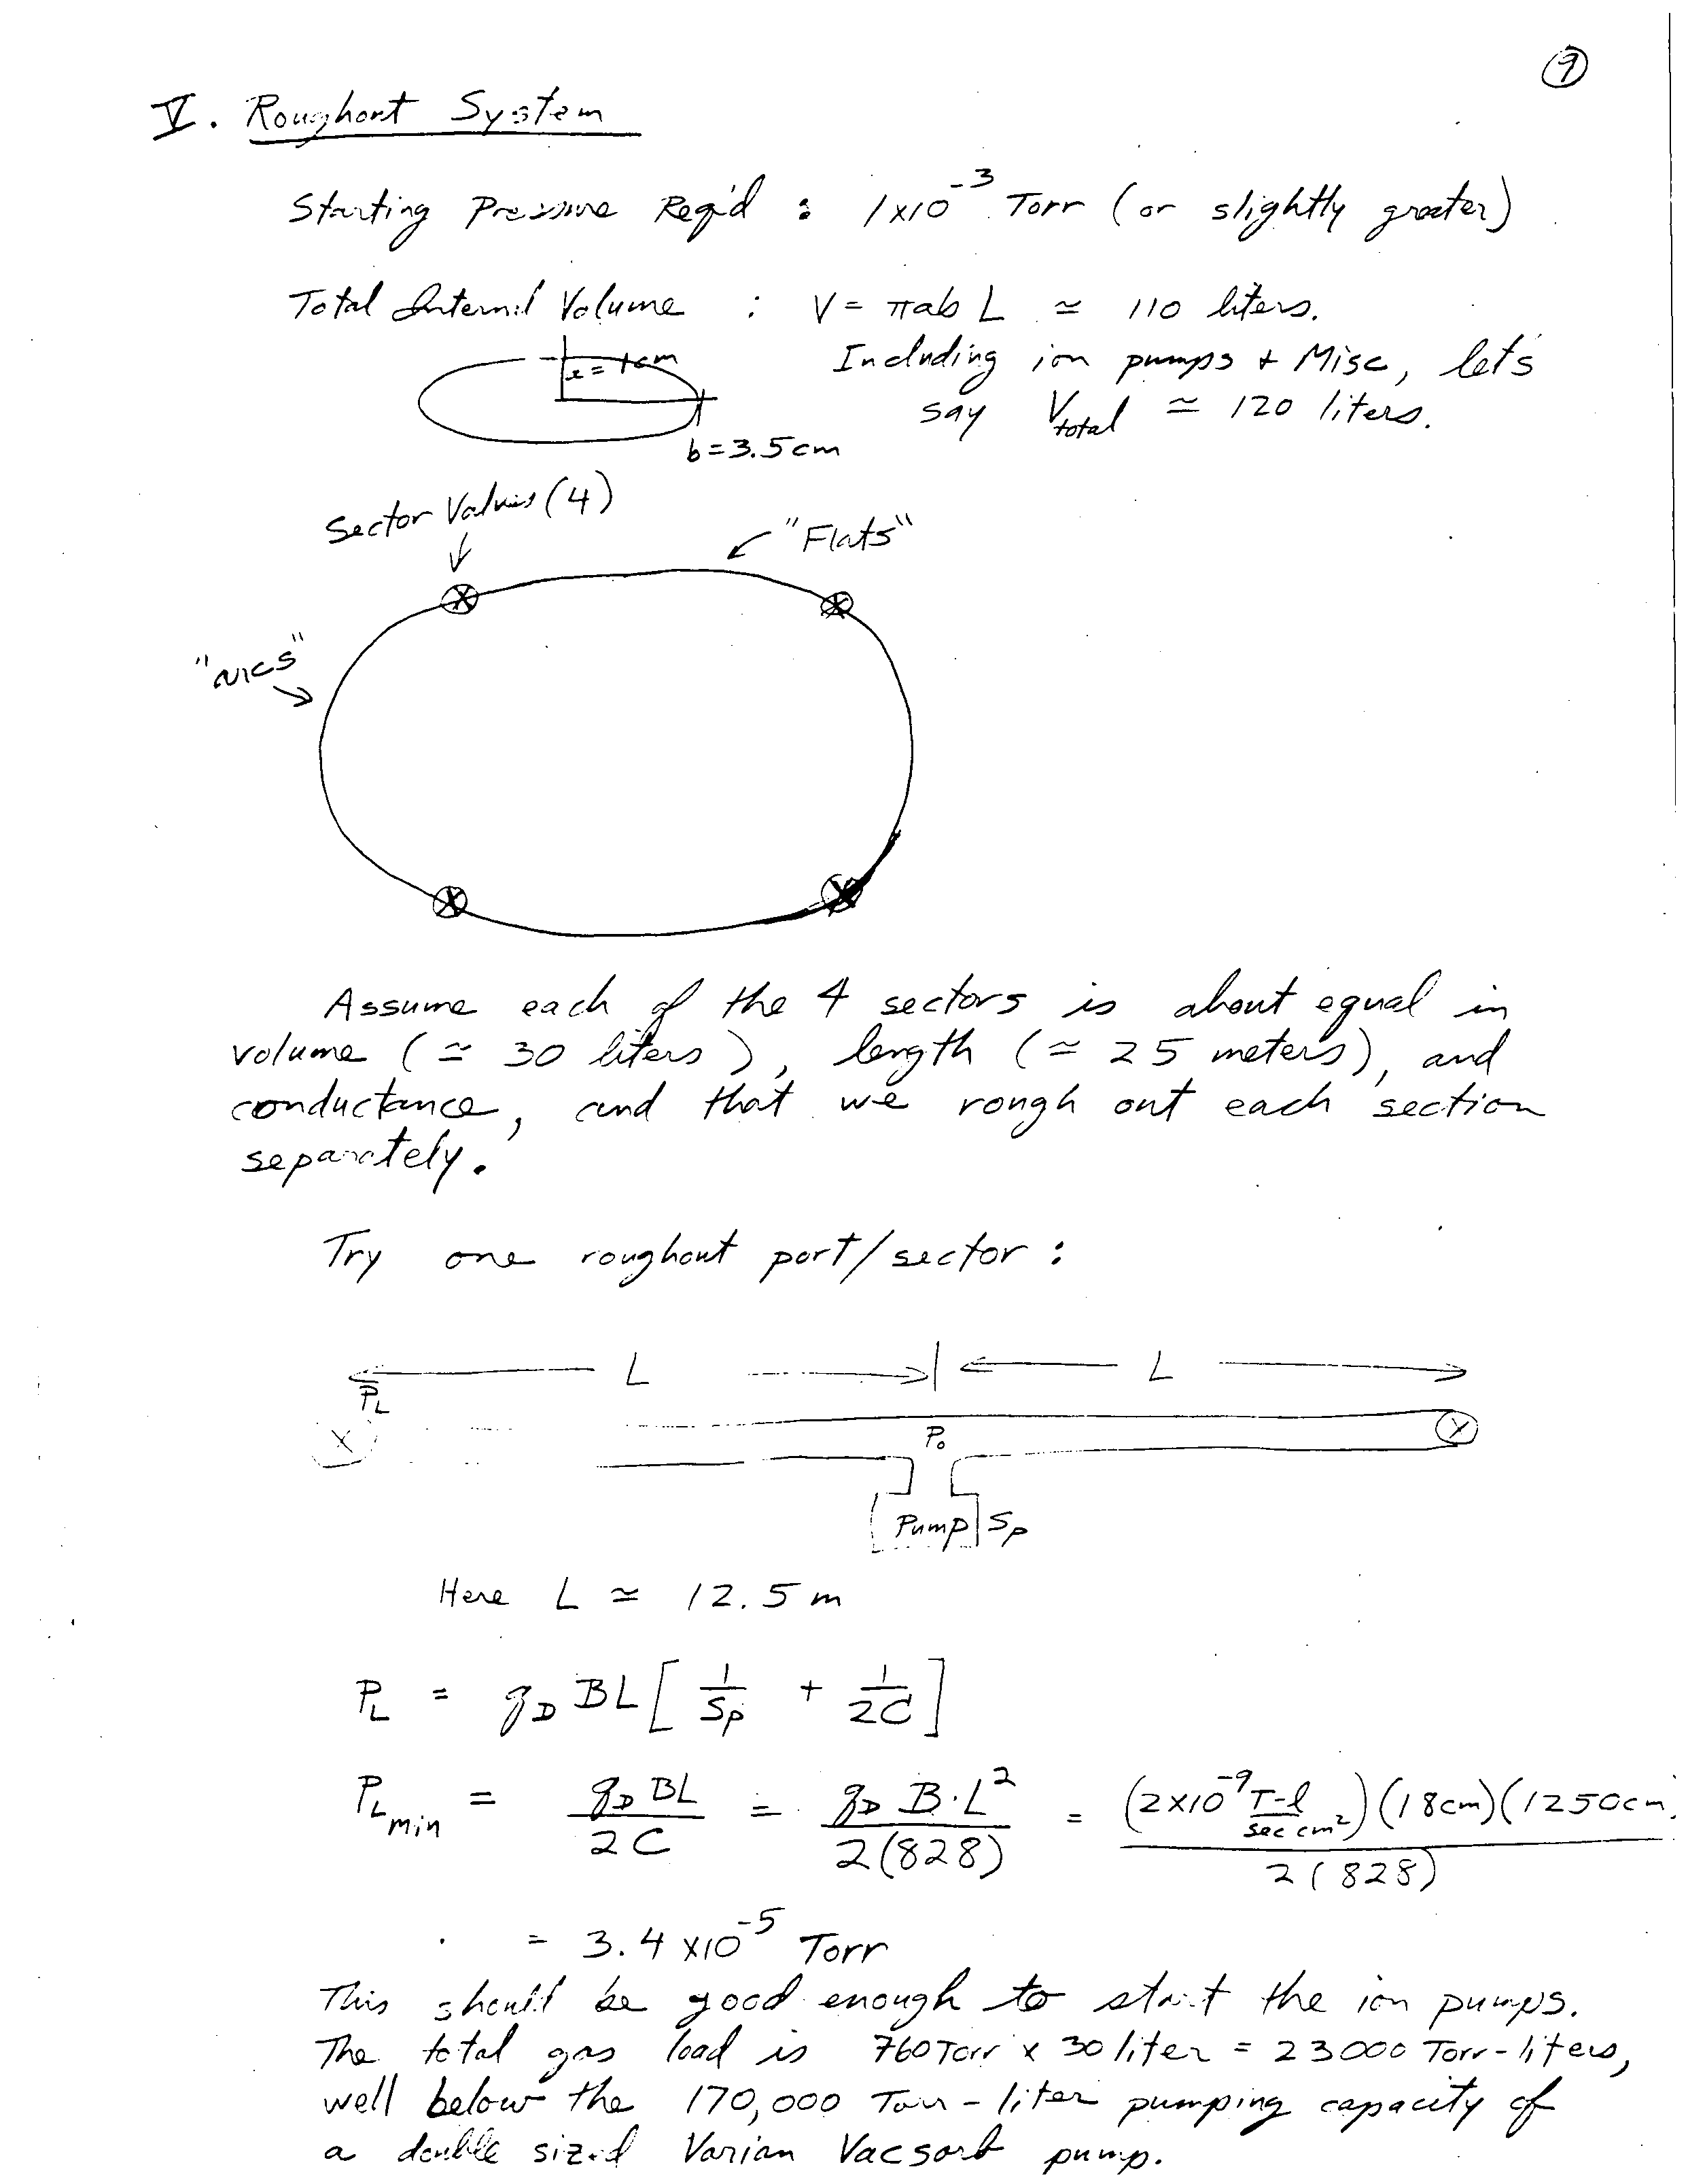 9
V. Roughout System
Starting Pressure Req'd : 1x10^-3 Torr (or slightly greater)
Total Internal Volume : V = πab L ≃ 110 liters.
Including ion pumps + Misc, let's
say V_total ≃ 120 liters.
= 1cm
b = 3.5 cm
Sector Valves (4)
"Flats"
"arcs"
Assume each of the 4 sectors is about equal in
volume (≃ 30 liters), length (≃ 25 meters), and
conductance, and that we rough out each section
separately.
Try one roughout port/sector :
L L
P_L
P_o
Pump S_p
Here L ≃ 12.5 m
P_L = q_D BL [ 1/S_p + 1/2C ]
P_L min = q_D BL / 2C = q_D B·L^2 / 2(828) = (2x10^-9 T-l / sec cm^2)(18cm)(1250cm / 2(828)
= 3.4 x10^-5 Torr
This should be good enough to start the ion pumps.
The total gas load is 760 Torr x 30 liter = 23000 Torr-liters,
well below the 170,000 Torr-liter pumping capacity of
a double sized Varian Vacsorb pump.